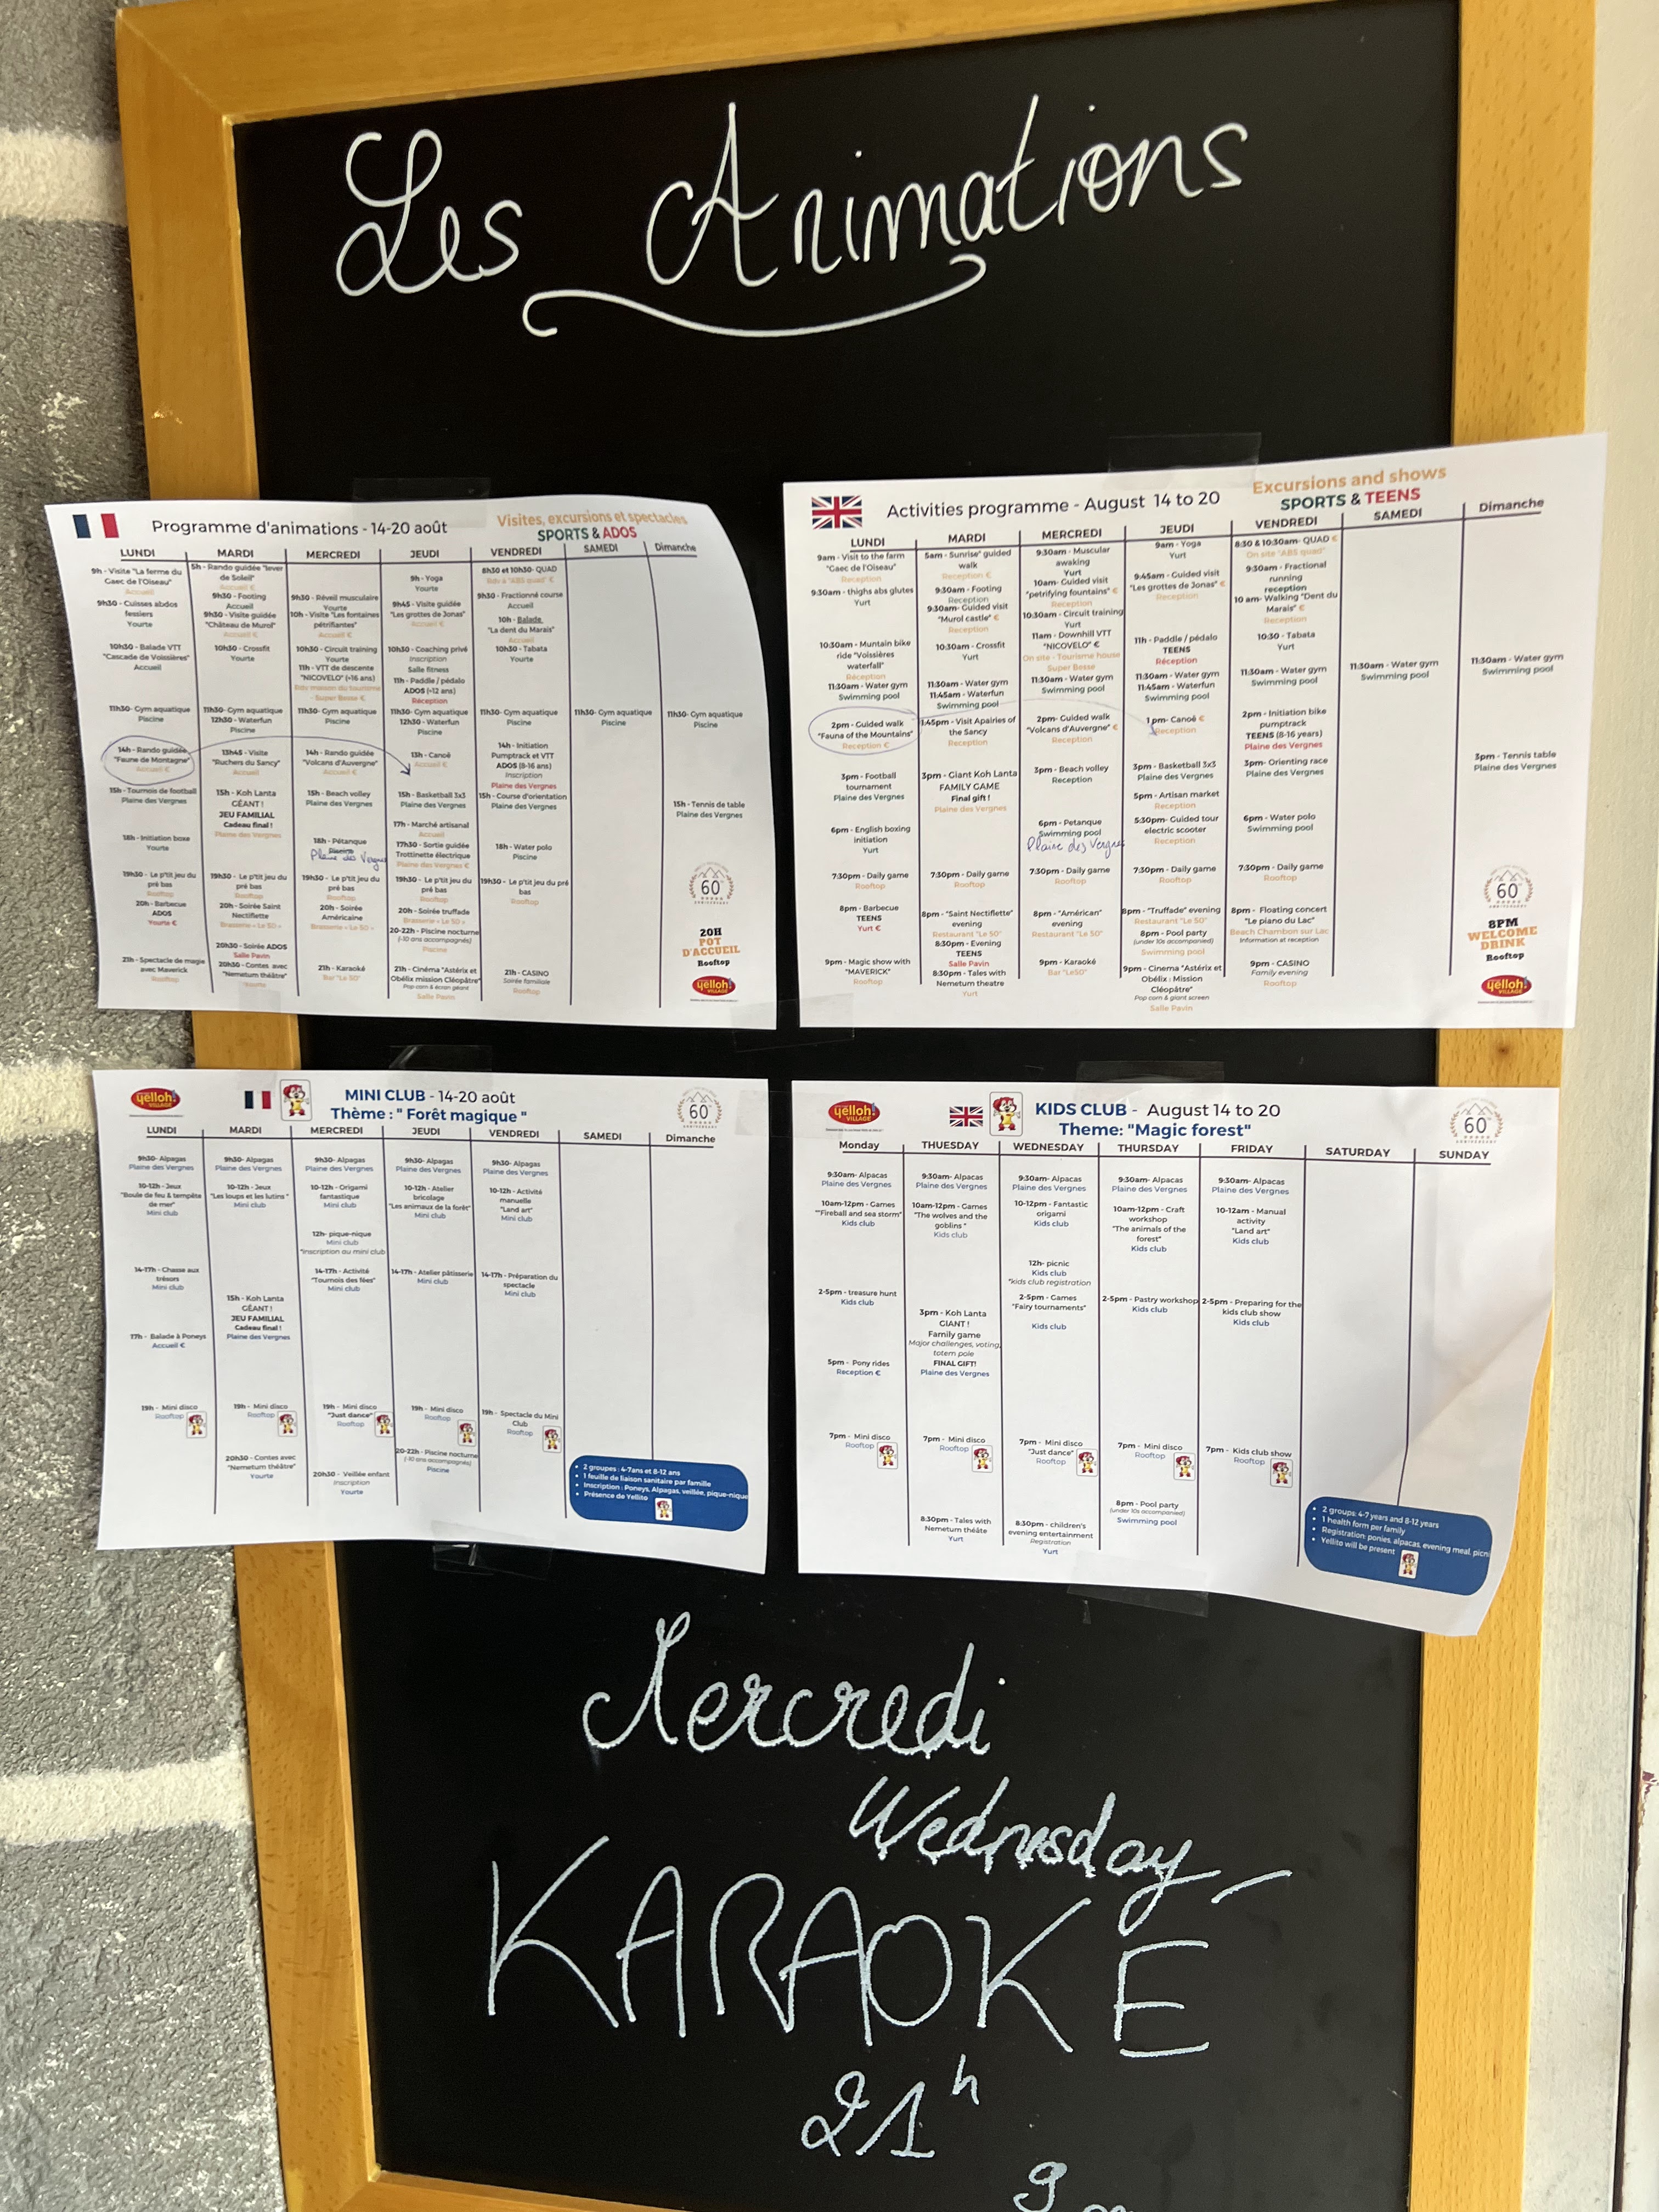 Les Animations
Programme d'animations - 14-20 août
Visites, excursions et spectacles
SPORTS & ADOS
LUNDI
9h - Visite "La ferme du
Gaec de l'Oiseau"
Accueil
9h30 - Cuisses abdos
fessiers
Yourte
10h30 - Balade VTT
"Cascade de Voissières"
Accueil
11h30- Gym aquatique
Piscine
14h - Rando guidée
"Faune de Montagne"
Accueil €
15h - Tournois de football
Plaine des Vergnes
18h - Initiation boxe
Yourte
19h30 - Le p'tit jeu du
pré bas
Rooftop
20h - Barbecue
ADOS
Yourte €
21h - Spectacle de magie
avec Maverick
Rooftop
MARDI
5h - Rando guidée "lever
de Soleil"
Accueil €
9h30 - Footing
Accueil
9h30 - Visite guidée
"Château de Murol"
Accueil €
10h30 - Crossfit
Yourte
11h30- Gym aquatique
12h30 - Waterfun
Piscine
13h45 - Visite
"Ruchers du Sancy"
Accueil
15h - Koh Lanta
GÉANT !
JEU FAMILIAL
Cadeau final !
Plaine des Vergnes
19h30 - Le p'tit jeu du
pré bas
Rooftop
20h - Soirée Saint
Nectiflette
Brasserie « Le 50 »
20h30 - Soirée ADOS
Salle Pavin
20h30 - Contes avec
"Nemetum théâtre"
Yourte
MERCREDI
9h30 - Réveil musculaire
Yourte
10h - Visite "Les fontaines
pétrifiantes"
Accueil €
10h30 - Circuit training
Yourte
11h - VTT de descente
"NICOVELO" (+16 ans)
Rdv maison du tourisme
- Super Besse €
11h30- Gym aquatique
Piscine
14h - Rando guidée
"Volcans d'Auvergne"
Accueil €
15h - Beach volley
Plaine des Vergnes
18h - Pétanque
Piscine
Plaine des Vergnes
19h30 - Le p'tit jeu du
pré bas
Rooftop
20h - Soirée
Américaine
Brasserie « Le 50 »
21h - Karaoké
Bar "Le 50"
JEUDI
9h - Yoga
Yourte
9h45 - Visite guidée
"Les grottes de Jonas"
Accueil €
10h30 - Coaching privé
Inscription
Salle fitness
11h - Paddle / pédalo
ADOS (+12 ans)
Réception
11h30- Gym aquatique
12h30 - Waterfun
Piscine
13h - Canoë
Accueil €
15h - Basketball 3x3
Plaine des Vergnes
17h - Marché artisanal
Accueil
17h30 - Sortie guidée
Trottinette électrique
Plaine des Vergnes €
19h30 - Le p'tit jeu du
pré bas
Rooftop
20h - Soirée truffade
Brasserie « Le 50 »
20-22h - Piscine nocturne
(-10 ans accompagnés)
Piscine
21h - Cinéma "Astérix et
Obélix mission Cléopâtre"
Pop corn & écran géant
Salle Pavin
VENDREDI
8h30 et 10h30- QUAD
Rdv à "ABS quad" €
9h30 - Fractionné course
Accueil
10h - Balade
"La dent du Marais"
Accueil
10h30 - Tabata
Yourte
11h30- Gym aquatique
Piscine
14h - Initiation
Pumptrack et VTT
ADOS (8-16 ans)
Inscription
Plaine des Vergnes
15h - Course d'orientation
Plaine des Vergnes
18h - Water polo
Piscine
19h30 - Le p'tit jeu du pré
bas
Rooftop
21h - CASINO
Soirée familiale
Rooftop
SAMEDI
11h30 - Gym aquatique
Piscine
Dimanche
11h30 - Gym aquatique
Piscine
15h - Tennis de table
Plaine des Vergnes
60
20H
POT
D'ACCUEIL
Rooftop
yelloh!
VILLAGE
Activities programme - August 14 to 20
Excursions and shows
SPORTS & TEENS
LUNDI
9am - Visit to the farm
"Gaec de l'Oiseau"
Reception
9:30am - thighs abs glutes
Yurt
10:30am - Muntain bike
ride "Voissières
waterfall"
Réception
11:30am - Water gym
Swimming pool
2pm - Guided walk
"Fauna of the Mountains"
Reception €
3pm - Football
tournament
Plaine des Vergnes
6pm - English boxing
initiation
Yurt
7:30pm - Daily game
Rooftop
8pm - Barbecue
TEENS
Yurt €
9pm - Magic show with
"MAVERICK"
Rooftop
MARDI
5am - Sunrise" guided
walk
Reception €
9:30am - Footing
Reception
9:30am- Guided visit
"Murol castle" €
Reception
10:30am - Crossfit
Yurt
11:30am - Water gym
11:45am - Waterfun
Swimming pool
1:45pm - Visit Apairies of
the Sancy
Reception
3pm - Giant Koh Lanta
FAMILY GAME
Final gift !
Plaine des Vergnes
7:30pm - Daily game
Rooftop
8pm - "Saint Nectiflette"
evening
Restaurant "Le 50"
8:30pm - Evening
TEENS
Salle Pavin
8:30pm - Tales with
Nemetum theatre
Yurt
MERCREDI
9:30am - Muscular
awaking
Yurt
10am- Guided visit
"petrifying fountains" €
Reception
10:30am - Circuit training
Yurt
11am - Downhill VTT
"NICOVELO" €
On site - Tourisme house
Super Besse
11:30am - Water gym
Swimming pool
2pm- Guided walk
"Volcans d'Auvergne" €
Reception
3pm - Beach volley
Reception
6pm - Petanque
Swimming pool
Plaine des Vergnes
7:30pm - Daily game
Rooftop
8pm - "Américan"
evening
Restaurant "Le 50"
9pm - Karaoké
Bar "Le50"
JEUDI
9am - Yoga
Yurt
9:45am - Guided visit
"Les grottes de Jonas" €
Reception
11h - Paddle / pédalo
TEENS
Réception
11:30am - Water gym
11:45am - Waterfun
Swimming pool
1 pm- Canoë €
Reception
3pm - Basketball 3x3
Plaine des Vergnes
5pm - Artisan market
Reception
5:30pm - Guided tour
electric scooter
Reception
7:30pm - Daily game
Rooftop
8pm - "Truffade" evening
Restaurant "Le 50"
8pm - Pool party
(under 10s accompanied)
Swimming pool
9pm - Cinema "Astérix et
Obélix : Mission
Cléopâtre"
Pop corn & giant screen
Salle Pavin
VENDREDI
8:30 & 10:30am- QUAD €
On site "ABS quad"
9:30am - Fractional
running
reception
10 am- Walking "Dent du
Marais" €
Reception
10:30 - Tabata
Yurt
11:30am - Water gym
Swimming pool
2pm - Initiation bike
pumptrack
TEENS (8-16 years)
Plaine des Vergnes
3pm- Orienting race
Plaine des Vergnes
6pm - Water polo
Swimming pool
7:30pm - Daily game
Rooftop
8pm - Floating concert
"Le piano du Lac"
Beach Chambon sur Lac
Information at reception
9pm - CASINO
Family evening
Rooftop
SAMEDI
11:30am - Water gym
Swimming pool
Dimanche
11:30am - Water gym
Swimming pool
3pm - Tennis table
Plaine des Vergnes
60
8PM
WELCOME
DRINK
Rooftop
yelloh!
VILLAGE
yelloh!
VILLAGE
MINI CLUB - 14-20 août
Thème : " Forêt magique "
60
LUNDI
9h30- Alpagas
Plaine des Vergnes
10-12h - Jeux
"Boule de feu & tempête
de mer"
Mini club
14-17h - Chasse aux
trésors
Mini club
17h - Balade à Poneys
Accueil €
19h - Mini disco
Rooftop
MARDI
9h30- Alpagas
Plaine des Vergnes
10-12h - Jeux
"Les loups et les lutins "
Mini club
15h - Koh Lanta
GÉANT !
JEU FAMILIAL
Cadeau final !
Plaine des Vergnes
19h - Mini disco
Rooftop
20h30 - Contes avec
"Nemetum théâtre"
Yourte
MERCREDI
9h30- Alpagas
Plaine des Vergnes
10-12h - Origami
fantastique
Mini club
12h- pique-nique
Mini club
*inscription au mini club
14-17h - Activité
"Tournois des fées"
Mini club
19h - Mini disco
"Just dance"
Rooftop
20h30 - Veillée enfant
Inscription
Yourte
JEUDI
9h30- Alpagas
Plaine des Vergnes
10-12h - Atelier
bricolage
"Les animaux de la forêt"
Mini club
14-17h - Atelier pâtisserie
Mini club
19h - Mini disco
Rooftop
20-22h - Piscine nocturne
(-10 ans accompagnés)
Piscine
VENDREDI
9h30- Alpagas
Plaine des Vergnes
10-12h - Activité
manuelle
"Land art"
Mini club
14-17h - Préparation du
spectacle
Mini club
19h - Spectacle du Mini
Club
Rooftop
SAMEDI
Dimanche
2 groupes : 4-7ans et 8-12 ans
1 feuille de liaison sanitaire par famille
Inscription : Poneys, Alpagas, veillée, pique-nique
Présence de Yellito
yelloh!
VILLAGE
KIDS CLUB - August 14 to 20
Theme: "Magic forest"
60
Monday
9:30am- Alpacas
Plaine des Vergnes
10am-12pm - Games
""Fireball and sea storm"
Kids club
2-5pm - treasure hunt
Kids club
5pm - Pony rides
Reception €
7pm - Mini disco
Rooftop
THUESDAY
9:30am- Alpacas
Plaine des Vergnes
10am-12pm - Games
"The wolves and the
goblins "
Kids club
3pm - Koh Lanta
GIANT !
Family game
Major challenges, voting,
totem pole
FINAL GIFT!
Plaine des Vergnes
7pm - Mini disco
Rooftop
8:30pm - Tales with
Nemetum théâte
Yurt
WEDNESDAY
9:30am- Alpacas
Plaine des Vergnes
10-12pm - Fantastic
origami
Kids club
12h- picnic
Kids club
*kids club registration
2-5pm - Games
"Fairy tournaments"
Kids club
7pm - Mini disco
"Just dance"
Rooftop
8:30pm - children's
evening entertainment
Registration
Yurt
THURSDAY
9:30am- Alpacas
Plaine des Vergnes
10am-12pm - Craft
workshop
"The animals of the
forest"
Kids club
2-5pm - Pastry workshop
Kids club
7pm - Mini disco
Rooftop
8pm - Pool party
(under 10s accompanied)
Swimming pool
FRIDAY
9:30am- Alpacas
Plaine des Vergnes
10-12am - Manual
activity
"Land art"
Kids club
2-5pm - Preparing for the
kids club show
Kids club
7pm - Kids club show
Rooftop
SATURDAY
SUNDAY
2 groups: 4-7 years and 8-12 years
1 health form per family
Registration: ponies, alpacas, evening meal, picni
Yellito will be present
Mercredi
Wednesday
KARAOKE
21h
9